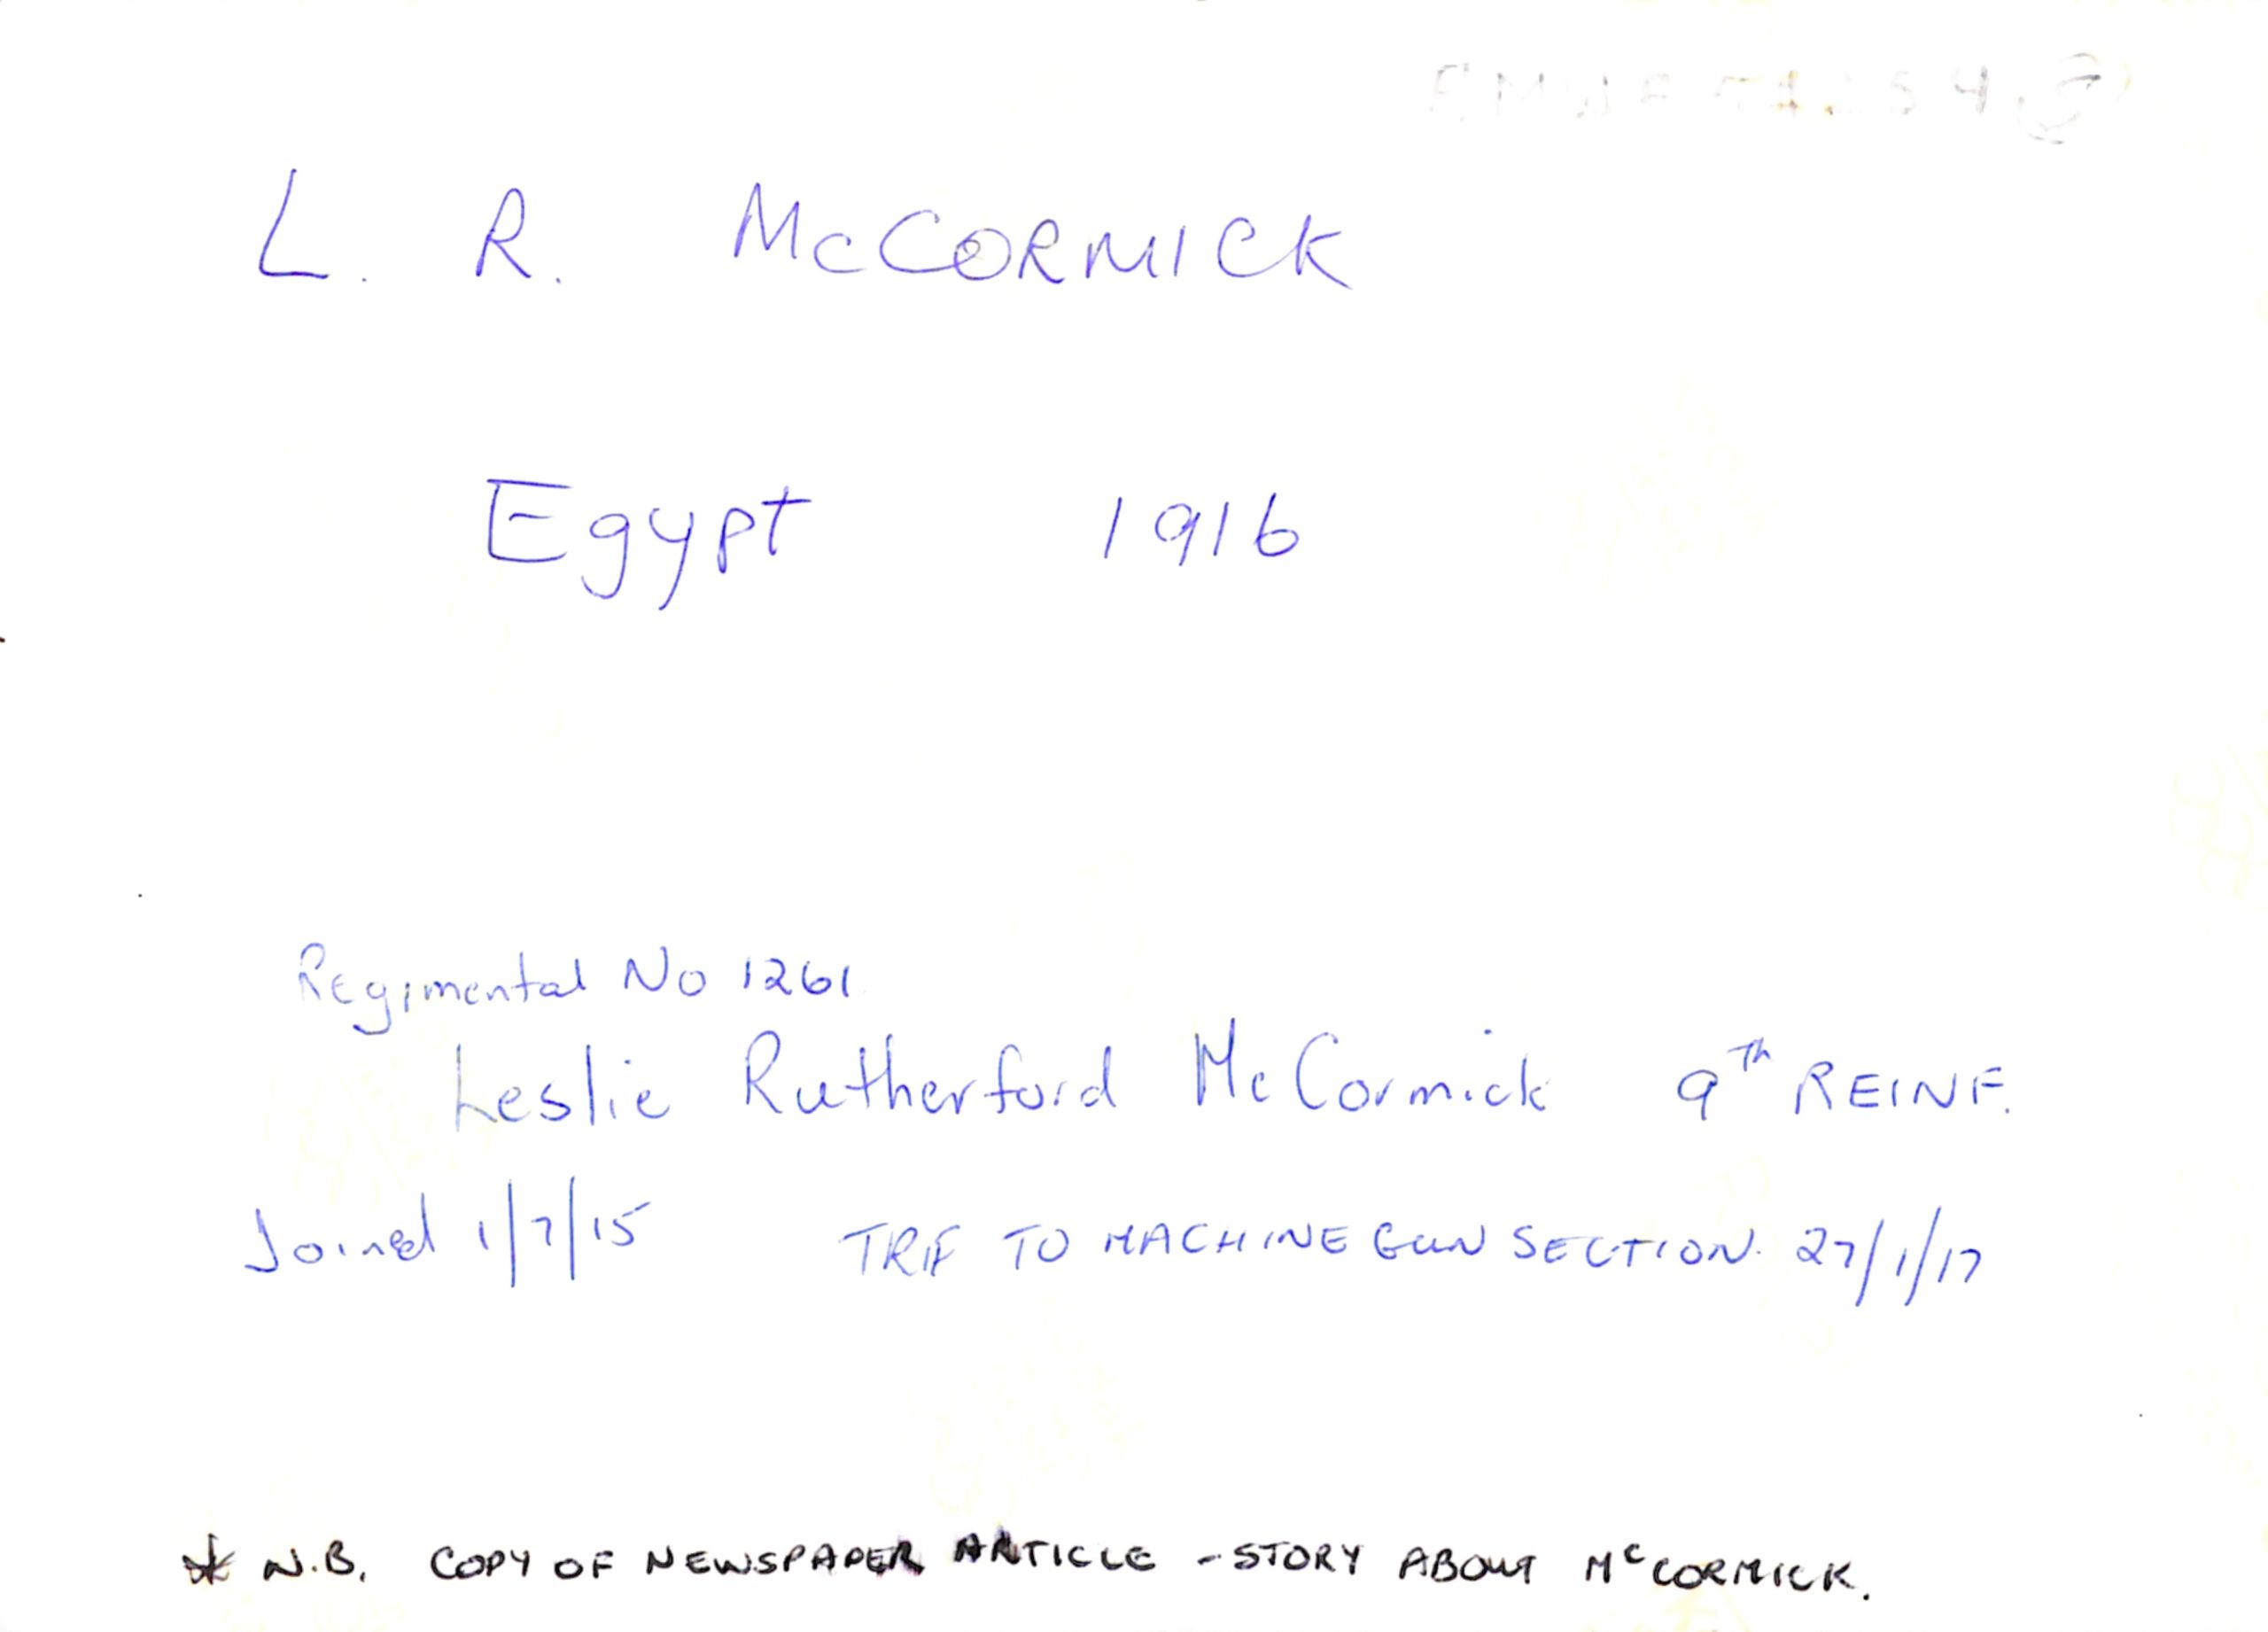 L. R. McCORMICK
Egypt 1916
Regimental No 1261
Leslie Rutherford McCormick 9TH REINF.
Joined 1/7/15 TO MACHINE GUN SECTION. 27/1/17
* N.B. COPY OF NEWSPAPER ARTICLE - STORY ABOUT McCORMICK.